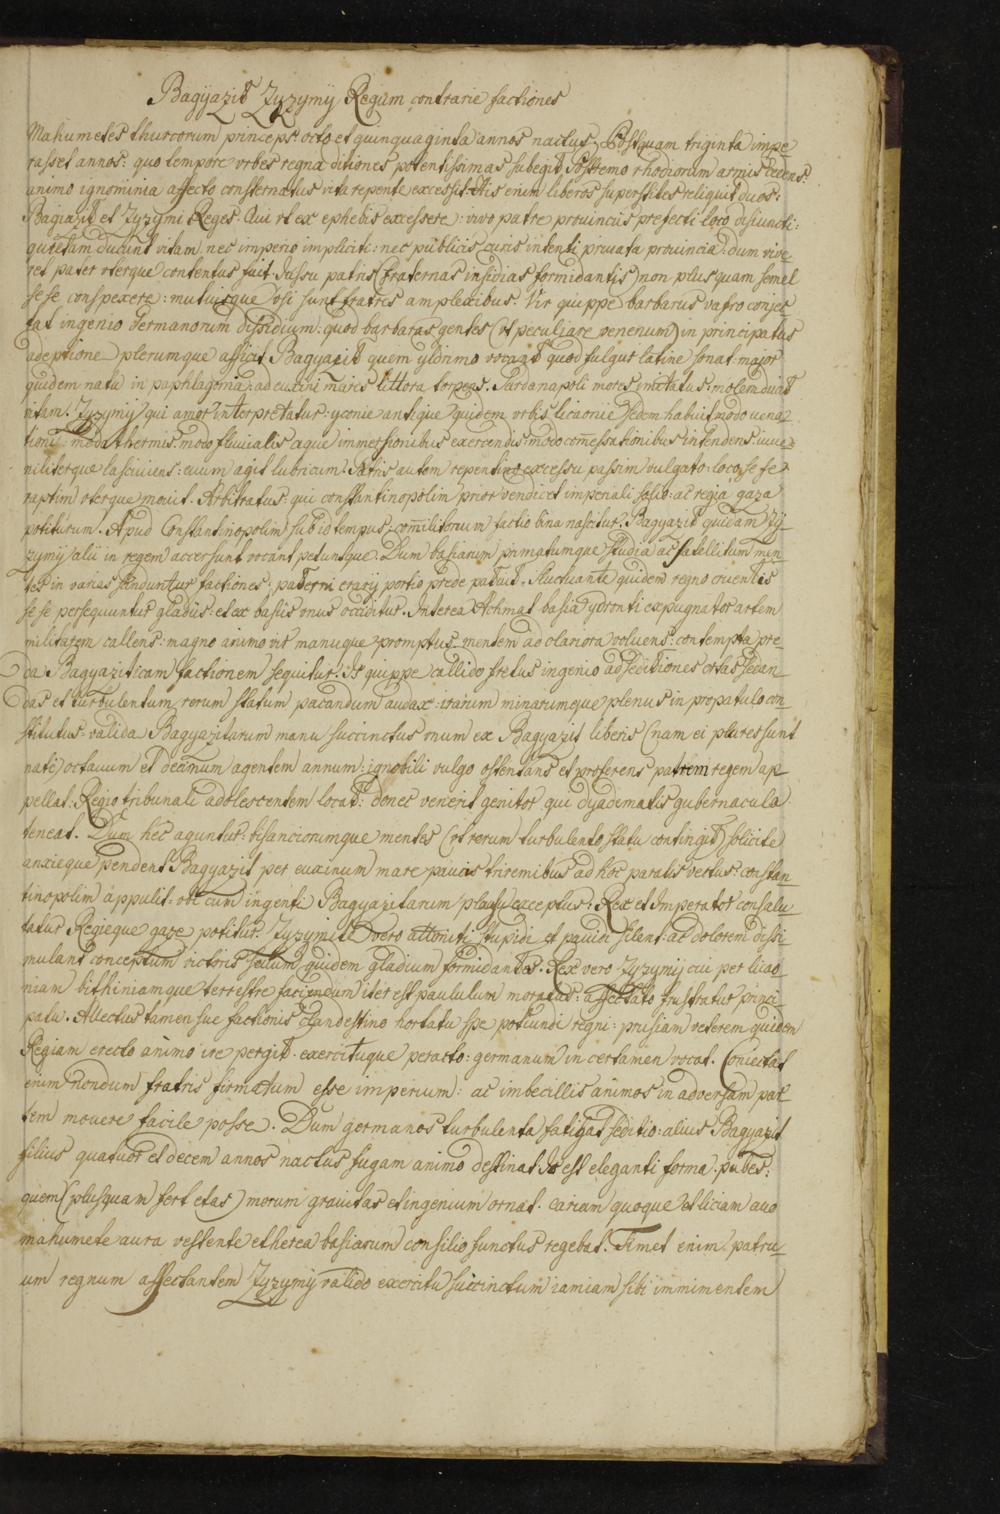 Bagyazit Zyzymy Regum contrarie factiones
Mahumetes thurcorum princeps octo et quinquaginta annos nactus: Postquam triginta impe-
rasset annos: quo tempore vrbes regna ditiones potentissimas subegit Postremo rhodiorum armis cedens:
animo ignominia affecto consternatus vita repente excessit. Is enim liberos superstites reliquit duos:
Bagiazit et Zyzymi Reges. Qui vt ex ephebis excessere: vivo patre provinciis prefecti loco disiuncti:
quietam ducunt vitam. nec imperio impliciti: nec publicis curis intenti privata provincia: dum vive-
ret pater vterque contentus fuit. Jussu patris (fraternas insidias formidantis) non plusquam semel
sese conspexere: mutuisque vsi sunt fratres amplexibus. Vir quippe barbarus vafro coniec-
tat ingenio Germanorum dissidium: quod barbaras gentes (vt peculiare venenum) in principatus
adeptione plerumque afficit. Bagyazit quem yldrimo vocant quod fulgur latine sonat major
quidem natu in paphlagonia: ad euxini maris littora torpens. Sardanapoli mores imitatus: molem ducit
vitam. Zyzymy qui amor interpretatur: yconie antique quidem vrbis licaonie sedem habuit modo vena-
tioni modo thermis modo fluvialis aque immersionibus exercendis: modo comessationibus intendens: iuve-
niliterque lasciviens: evum agit lubricum. Patris autem repentino excessu passim vulgato: loco sese
raptim vterque movit. Arbitratus qui constantinopolim prior vendicet imperiali solio: ac regia gaza
potiturum. Apud Constantinopolim sub id tempus comilitonum factio bina nascitur. Bagyazit quidam Zy-
zymy alii in regem accersunt vocant petuntque. Dum basiarum primatumque studia ac satellitum men-
tes in varias scinduntur factiones: paterni erarij portio prede patuit. Fluctuante quidem regno cruentis
sese persequuntur gladiis: et ex basiis vnus occiditur. Interea Achmat basia ydronti expugnator artem
militarem callens: magno animo vir manuque promptus mentem ad clariora voluens: contempta pre-
da Bagyaziticam factionem sequitur. Is quippe callido fretus ingenio ad seditiones ortas sedan-
das et turbulentum rerum statum pacandum audax: irarum minarumque plenus in propatulo con-
stitutus: valida Bagyazitarum manu succinctus vnum ex Bagyazit liberis (nam ei plures sunt
nati) octauum et decimum agentem annum: ignobili vulgo ostentans et proferens patrem regem ap-
pellat. Regio tribunali adolescentem locat: donec venerit genitor qui dyadematis gubernacula
teneat. Dum hec aguntur bisanciorumque mentes (vt rerum turbulento statu contingit) solicite
anxieque pendent Bagyazit per euxinum mare paucis triremibus ad hoc paratis vectus: constan-
tinopolim appulit: vbi cum ingenti Bagyazitarum plausu exceptus: Rex et Imperator consalu-
tatur Regieque gaze potitur. Zyzymite vero attoniti stupidi et pavidi silent: ac dolorem dissi-
mulant conceptum victoris seuum quidem gladium formidantes. Rex vero Zyzymij cui per licao-
niam bithiniamque terrestre faciendum iter est paululum moratus: affectato frustratur princi-
patu. Allectus tamen sue factionis clandestino hortatu spe potiundi regni: prusiam veterem quidem
Regiam erecto animo ire pergit: exercituque peracto: germanum in certamen vocat. Coniectat
enim nondum fratris firmatum esse imperium: ac imbecillis animos in adversam par-
tem mouere facile posse. Dum germanos turbulenta fatigat seditio: alius Bagyazit
filius quatuor et decem annos nactus fugam animo destinat. Is est eleganti forma pubes:
quem (plusquam fert etas) morum gravitas et ingenium ornat. cariam quoque et liciam auo
mahumete aura vescente etherea basiarum consilio functus regebat. Timet enim patru-
um regnum affectantem Zyzymij valido exercitu succinctum iamiam sibi imminentem